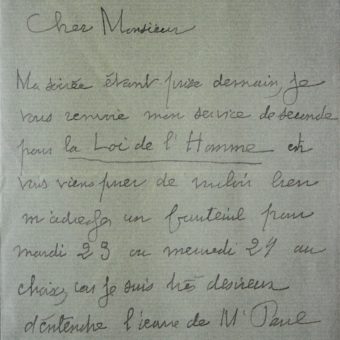 Cher Monsieur
Ma soirée étant prise demain, je
vous renvoie mon service de seconde
pour la Loi de l'Homme et
vous viens prier de vouloir bien
m'adresser un fauteuil pour
mardi 23 ou mercredi 24 au
choix, car je suis très désireux
d'entendre l'œuvre de Mr Paul